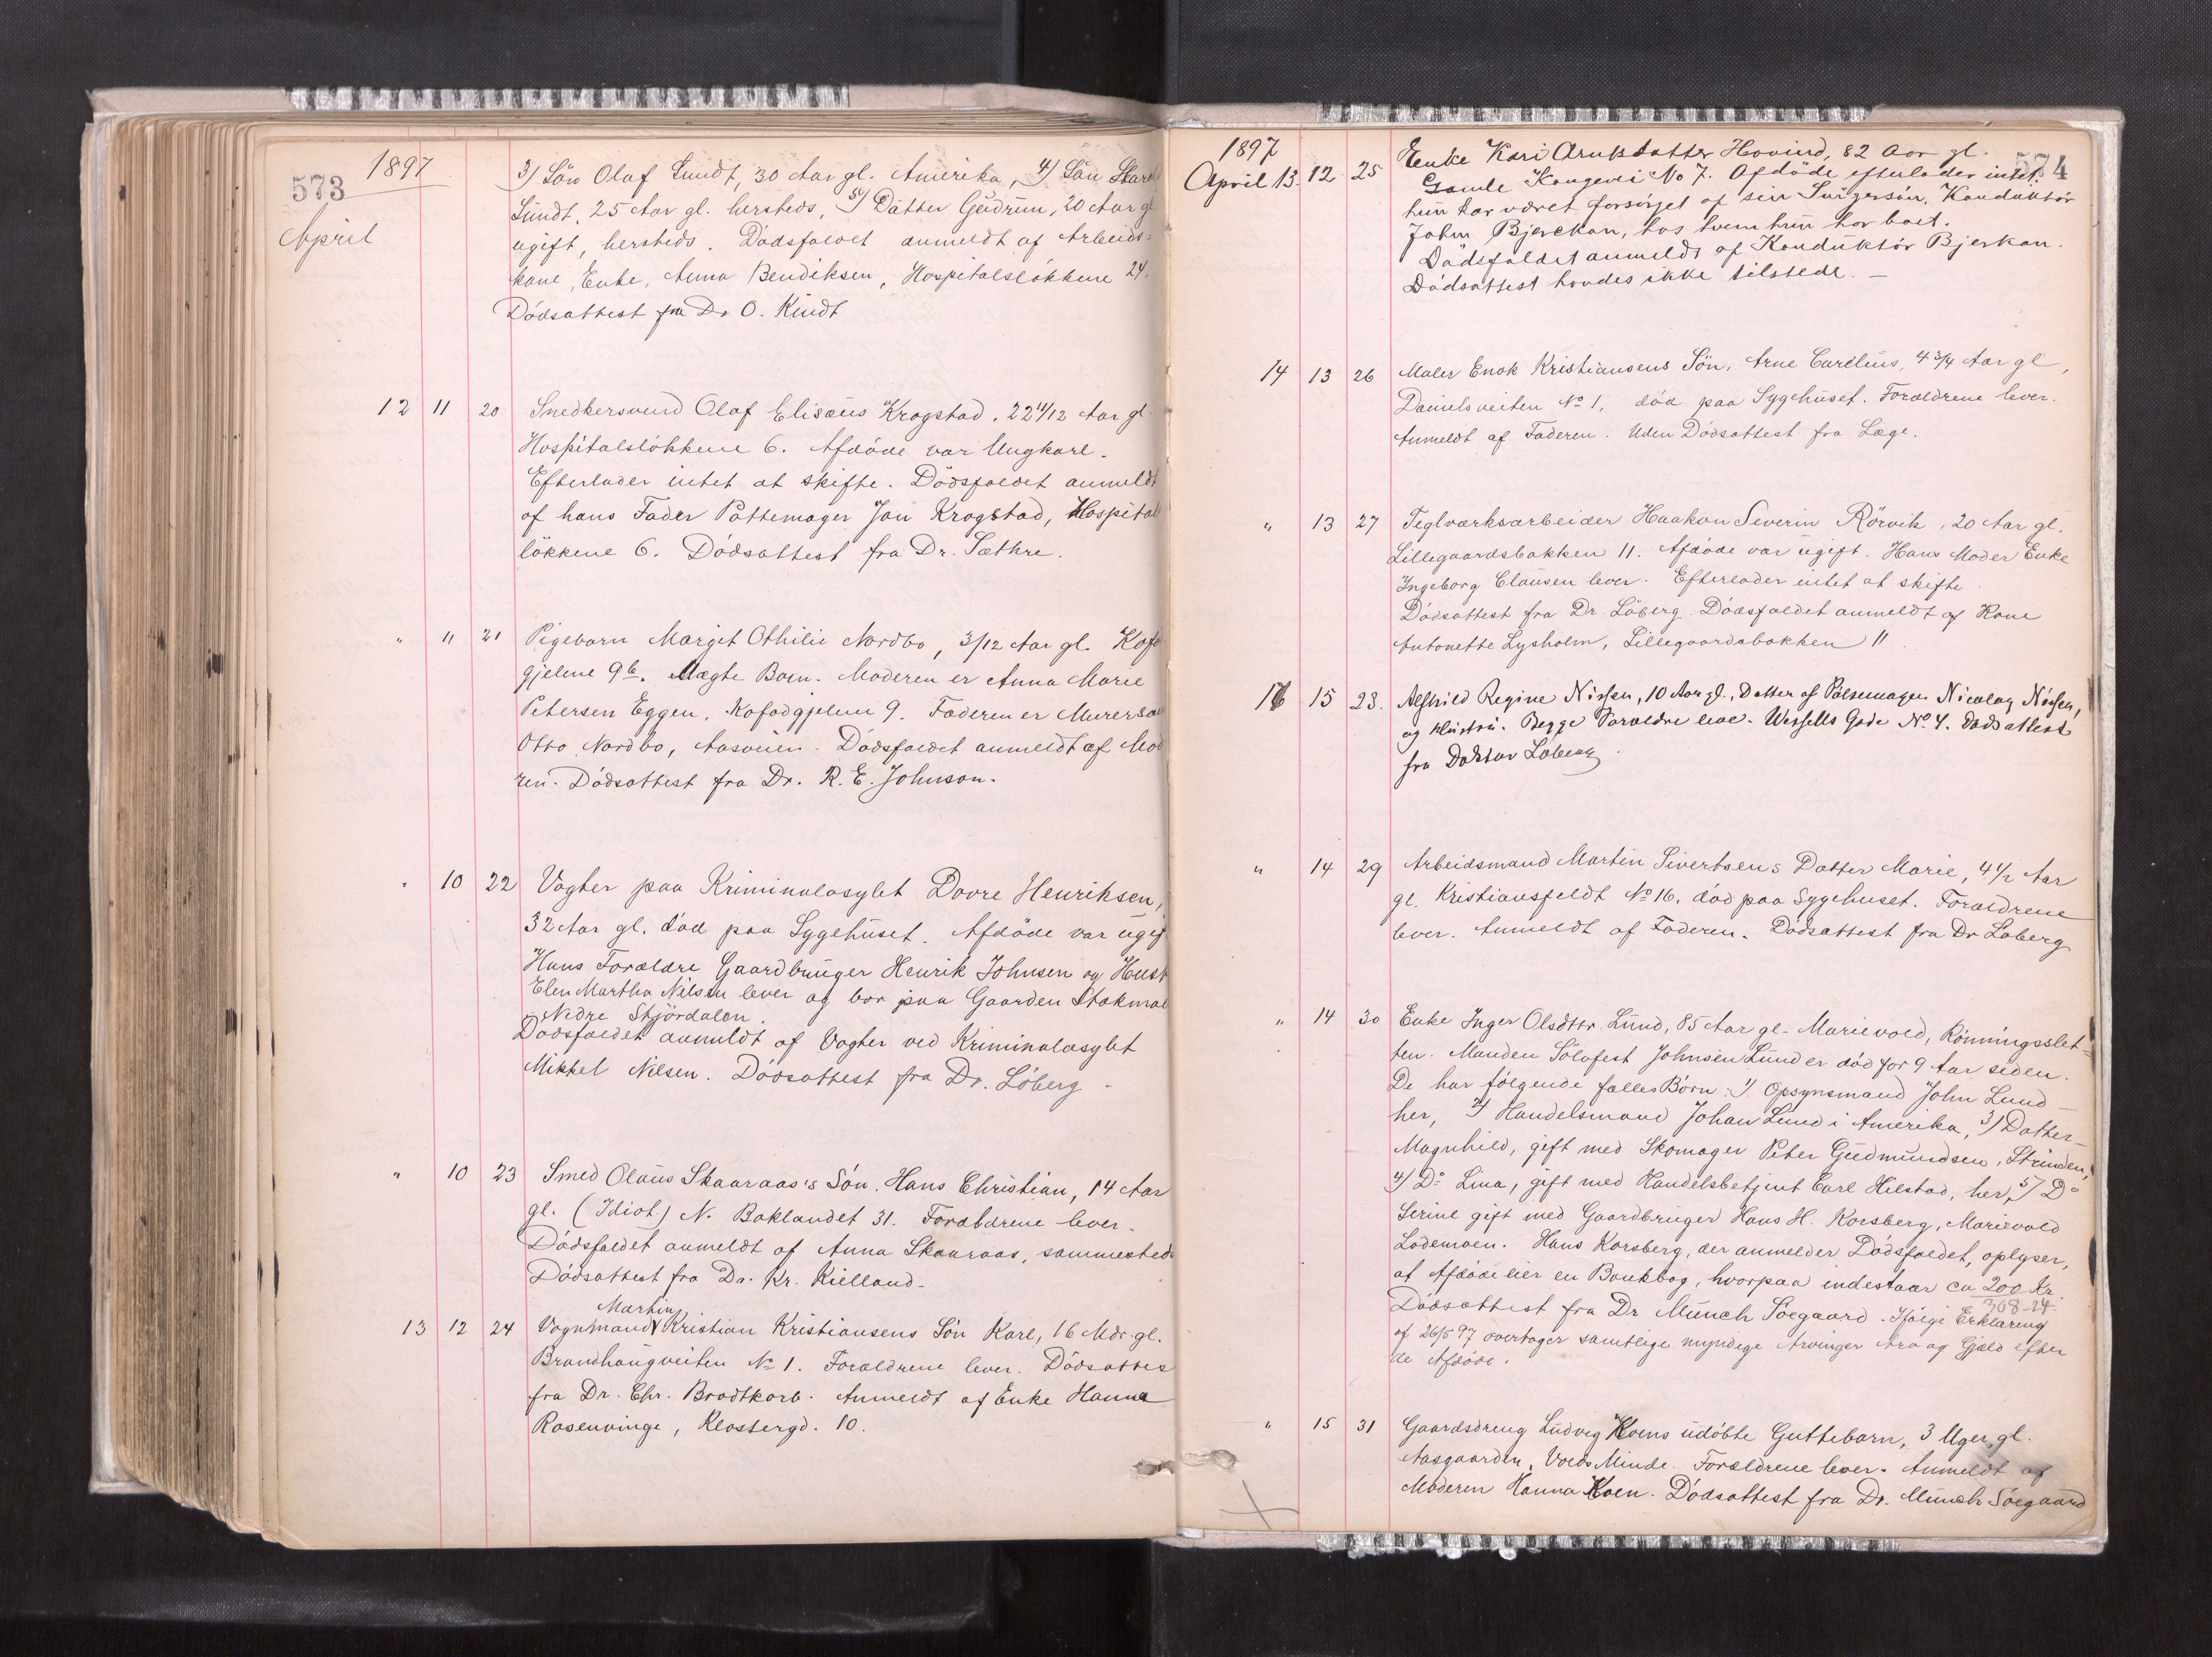 573
1897
April
3) Sön Olaf Sundt, 30 Aar gl. Amerika, 4) Sön
Sundt, 25 Aar gl. hersteds, 5) Datter Gudrun, 20 Aar gl
ugift, hersteds. Dödsfaldet anmeldt af Arbeids-
kone, Enke, Anna Bendiksen, Hospitalslökkene 24.
Dödsattest fra Dr O. Kindt
12 11 20 Snedkersvend Olaf Elisæus Krogstad. 22 11/12 Aar gl.
Hospitalslökkene 6. Afdöde var Ungkarl.
Efterlader intet at skifte. Dödsfaldet anmeldt
af hans Fader Pottemager Jon Krogstad, Hospital
lökkene 6. Dödsattest fra Dr. Sæthre.
" 11 21 Pigebarn Margit Othilie Nordbo, 3/12 Aar gl. Kofo
gjelene 9b. Uægte Barn. Moderen er Anna Marie
Petersen Eggen, Kofodgjelene 9. Faderen er Murersv
Otto Nordbo, Aasveien. Dödsfaldet anmeldt af Mod
ren. Dödsattest fra Dr. R. E. Johnson.
" 10 22 Vogter paa Kriminalasylet Dovre Henriksen,
32 Aar gl. död paa Sygehuset. Afdöde var ugif
Hans Forældre Gaardbruger Henrik Johnsen og Hust
Elen Martha Nilsen lever og bor paa Gaarden Stokmoe
Nedre Stjördalen.
Dödsfaldet anmeldt af Vogter ved Kriminalasylet
Mikkel Nilsen. Dödsattest fra Dr. Löberg.
" 10 23 Smed Olaus Skaaraas's Sön. Hans Christian, 14 Aar
gl. (Idiot) N. Baklandet 31. Forældrene lever.
Dödsfaldet anmeldt af Anna Skaaraas, sammesteds
Dödsattest fra Dr. Kr. Kielland.
Martin
13 12 24 Vognmand Kristian Kristiansens Sön Karl, 16 Mdr. gl.
Brandhaugveiten No 1. Forældrene lever. Dödsattes
fra Dr. Chr. Brodtkorb. Anmeldt af Enke Hanna
Rosenvinge, Klostergd. 10.
574
1897
April 13. 12 25 Enke Kari Arntsdatter Hovind, 82 Aar gl.
Gamle Kongevei No 7. Afdöde efterlader intet.
hun har været forsörget af sin Svigersön, Konduktör
John Bjerckan, hos hvem hun har boet.
Dödsfaldet anmeldt af Konduktör Bjerkan.
Dödsattest havdes ikke tilstede. —
14 13 26 Maler Enok Kristiansens Sön, Arne Cardlius, 4 3/4 Aar gl,
Danielsveiten No 1, död paa Sygehuset. Forældrene lever.
Anmeldt af Faderen. Uden Dödsattest fra Læge.
" 13 27 Teglværksarbeider Haakon Severin Rörvik, 20 Aar gl.
Lillegaardsbakken 11. Afdöde var ugift. Hans Moder Enke
Ingeborg Clausen lever. Efterlader intet at skifte.
Dödsattest fra Dr. Löberg. Dödsfaldet anmeldt af Kone
Antonette Lysholm, Lillegaardsbakken 11.
16 15 28. Alfhild Regine Nissen, 10 Aar gl., Datter af Pölsemager Nicolay Nissen,
og Hustru. Begge Foreldre leve. Wessells Gade No. 4. Dödsattest
fra Doktor Löberg.
" 14 29 Arbeidsmand Martin Sivertsens Datter Marie, 4 1/2 Aar
gl. Kristiansfeldt No 16, död paa Sygehuset. Forældrene
lever. Anmeldt af Faderen. Dödsattest fra Dr Löberg
" 14 30 Enke Inger Olsdttr. Lund, 85 Aar gl. Marievold, Rönningsslet-
ten. Manden Sölvfest Johnsen Lund er död for 9 Aar siden.
De har fölgende fælles Börn: 1) Opsynsmand John Lund
her, 2) Handelsmand Johan Lund i Amerika, 3) Datter
Magnhild, gift med Skomager Peter Gudmundsen, Strinden,
4) Do Lina, gift med Handelsbetjent Carl Hilstad, her, 5) Do
Serine gift med Gaardbruger Hans H. Korsberg, Marievold
Lademoen. Hans Korsberg, der anmelder Dödsfaldet, oplyser,
at Afdöde eier en Bankbog, hvorpaa indestaar ca 200 Kr.
308-24.
Dödsattest fra Dr Münch Söegaard. Ifölge Erklæring
af 26/5 97 overtager samtlige myndige Arvinger Arv og Gjæld efter
de Afdöde.
" 15 31 Gaardsdreng Ludvig Koens udöbte Guttebarn, 3 Uger gl.
Aasgaarden, Volds Minde. Forældrene lever. Anmeldt af
Moderen Hanna Koen. Dödsattest fra Dr. Münch Söegaard